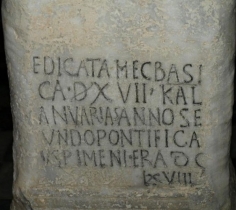 EDICATA·HEC BASI
CA·D'XVII' KAL
ANVARIAS ANNO SE
VNDO PONTIFICA
VS PIMENI·ERA DC
LXVIII